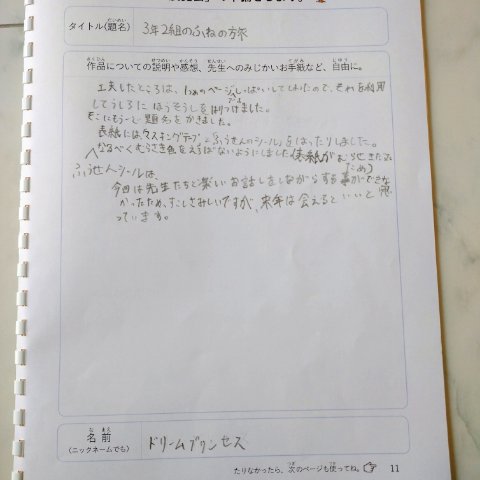 タイトル(題名) 3年2組のふねの旅
作品についての説明や感想、先生へのみじかいお手紙など、自由に。
工夫したところは、1つ目のページしっぱいしてしまったので、それを利用
してうしろにほうそうしをはりつけました。
そこにもう一ど題名をかきました。
表紙には、マスキングテープとふうせんのシールをはったりしました。
ふうせんシールは、なるべくむらさき色をえらばないようにしました(表紙がむらさきだったため)
今回は先生たちと楽しいお話しをしながらする事ができな
かったため、すこしさみしいですが、来年は会えるといいと思
っています。
名前
(ニックネームでも) ドリームプリンセス
たりなかったら、次のページも使ってね。 11